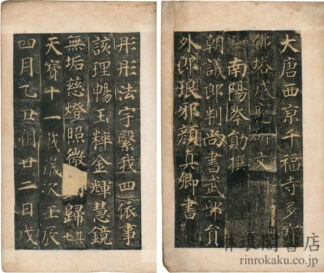 大唐西京千福寺多寶
佛塔感應碑文
南陽岑勛撰
朝議郎判尚書武部員
外郎琅邪顏真卿書
彤彤法宇繫我四依事
該理暢玉粹金輝慧鏡
無垢慈燈照微歸其
天寶十一載歲次壬辰
四月乙丑朔廿二日戊
琳琅閣書店
rinrokaku.co.jp